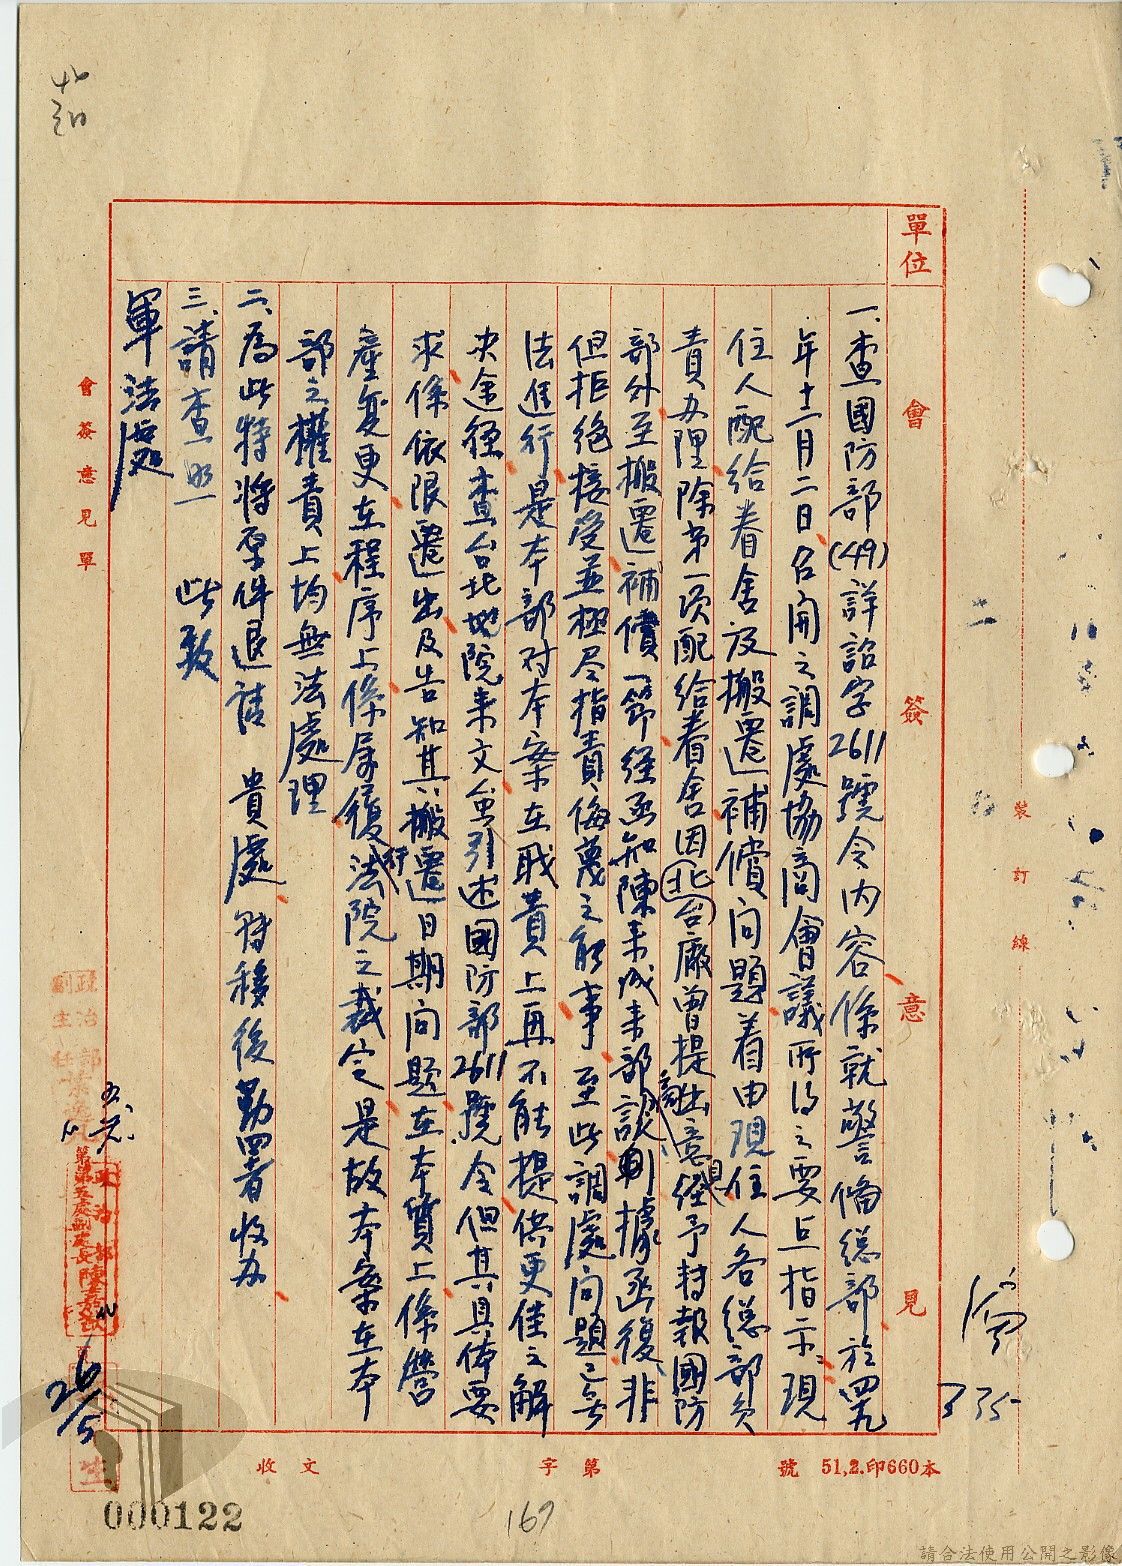 單位
會簽意見
一、查國防部(49)詳詔字2611號令內容係就警備總部於四九
年十二月二日召開之調處協商會議所得之要点指示、現
住人配給眷舍及搬遷補償问題着由現住人各總部負
責办理除第一項配給眷舍因北台廠曾提出意見經予轉報國防
部外至搬遷補償一節經函知陳来成来部談商則據函復、非
但拒绝接受並極尽指責侮蔑之能事至此調處问題已無
法進行是本部对本案在职責上再不能提供更佳之解
决途徑查台北地院来文虽引述國防部2611號令但其具体要
求係依限遷出及告知其搬遷日期问題在本質上係營
產变更在程序上係屬履行法院之裁定是故本案在本
部之權責上均無法處理
二、為此特將原件退請 貴處 转移後勤四署收办
三、請查照 此致
軍法處
會簽意見單
裝訂線
政治部
副主任
政治部
第五處副處長陸
26/5
335
收文
字第
號
51,2.印660本
000122
167
請合法使用公開之影像